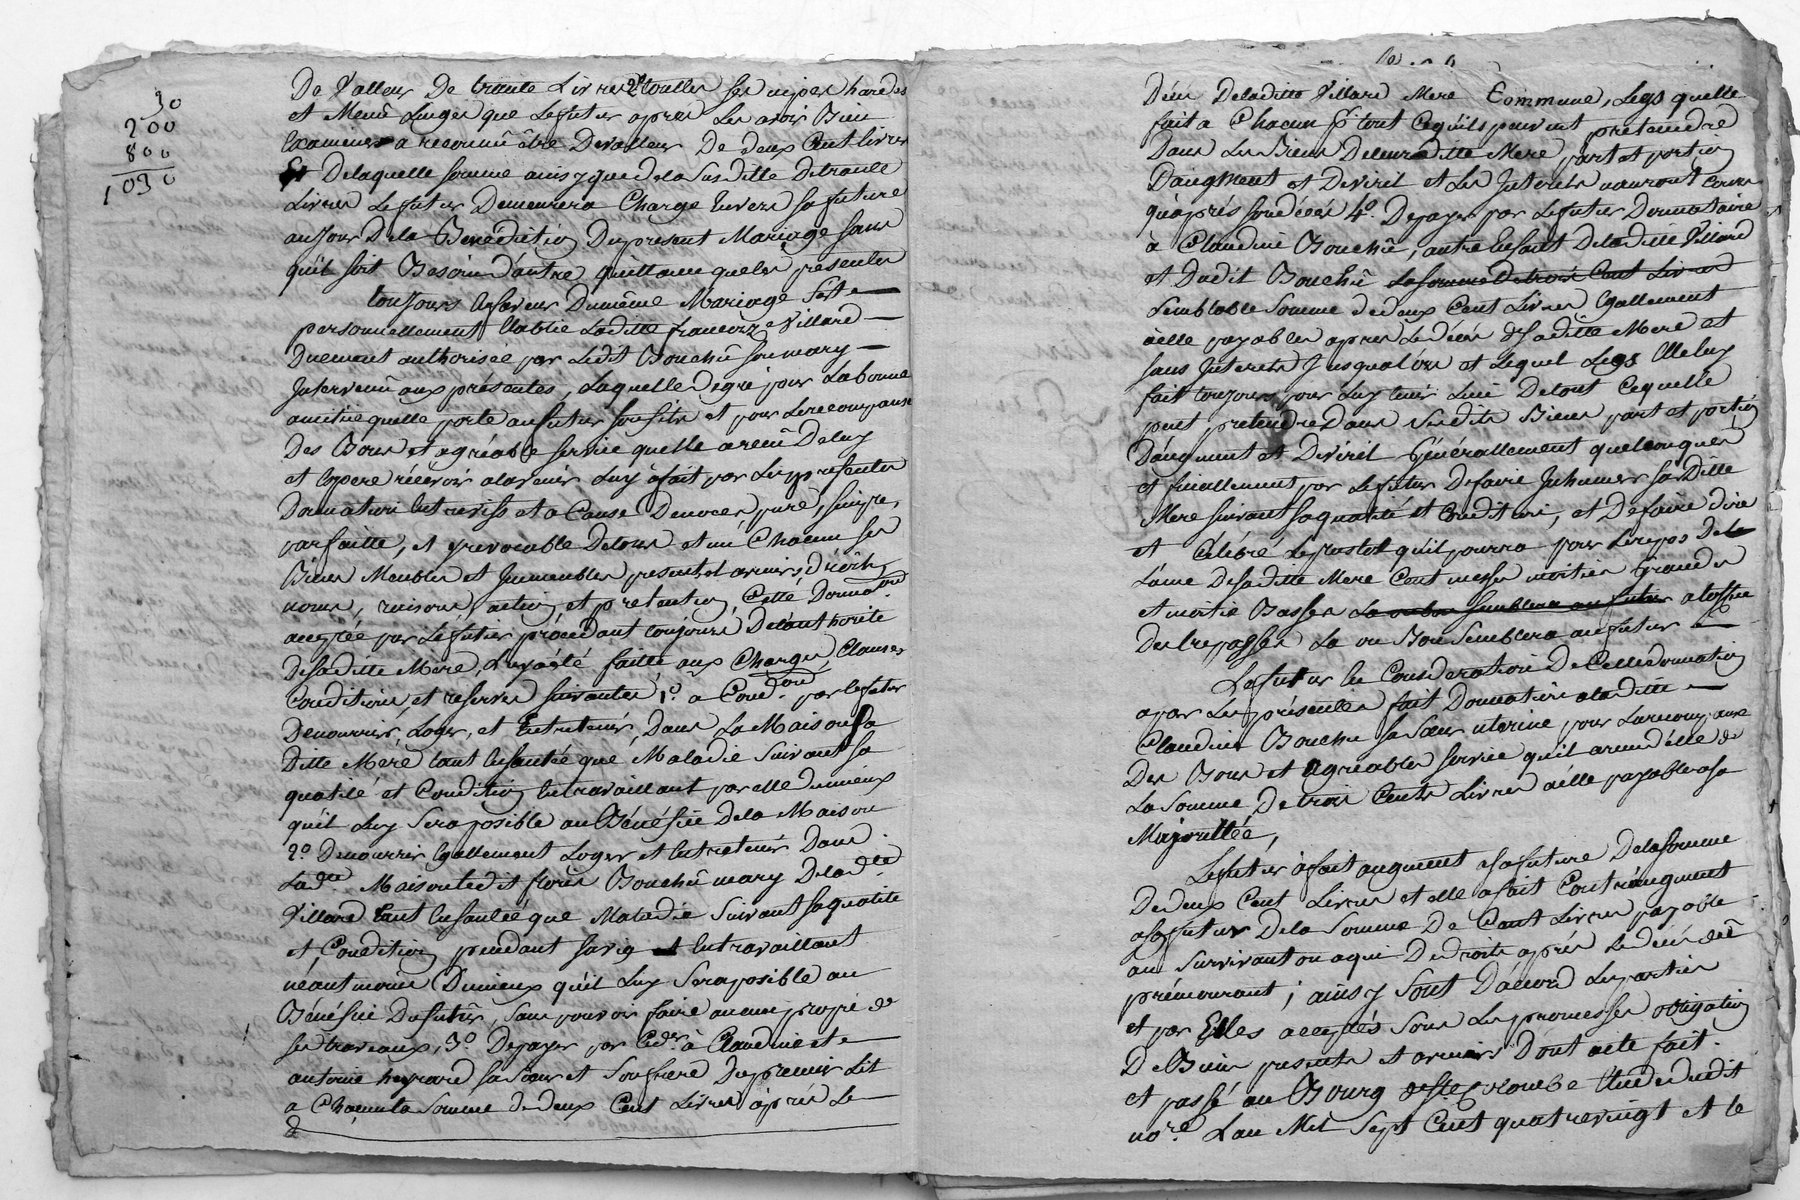 30
200
800
1030
De Valleur De trante Livres 2° touttes ses nipes hardes
et Menu Linges que Lefutur apres Les avoir Bien
Examinés a reconnû être Devalleur De deux Cent livres
Delaquelle somme ainsy que dela Susditte Detrante
Livres Lefutur Demeurera Chargé Envers sa future
aujour Dela Bénédiction Duprésent Mariage sans
qu'il soit Besoin d'autre quittance queles présentes
toujours Enfaveur Dumême Mariage s'est
personnellement Etablie Laditte francoize Villard
Duement authorisée par Ledit Bouchû son mary
Intervenû aux présentes, Laquelle degré pour Labonne
amitié quelle porte aufutur sonfils et pour Larecompanse
Des Bons et agréable service quelle a recû Deluy
et Espere récévoir alavenir Luy à fait par Lesprésentes
Donnation Entrevifs et a Cause Denoces pure, simple,
parfaitte, et yrevocable Detous et un Chacun ses
Biens Meubles et Immeubles présents et avenirs, droits,
noms, raisons, action et prétention, Cette Donnaon.
acceptée par Lefutur procédant toujours Del'authorité
Desaditte Mere, Luy a été faitte aux Charges Clauses
Conditions et reserves suivantes, 1° a Condon. par lefutur
Denourrir, Loger, et Entretenir, Dans La Maison Sa
Ditte Mere tant Ensantée que Maladie Suivant sa
qualité et Condition Entravaillant par elle dumieux
qu'il Luy Sera posible au Bénéfice Dela Maison
2° Denourrir Egallement Loger et Entretenir Dans
Lade. Maison Ledit floris Bouchû mary Delade.
Villard tant Ensantéé que Maladie Suivant saqualité
et Condition pendant savie et Entravaillant
néantmoins Dumieux qu'il Luy Sera posible au
Bénéfice Dufutur, sans pouvoir faire aucun propre de
ses travaux, 3° Depayer par à Claudine et
antoine heyrard sa Sœur et Sonfrere Dupremier Lit
a Chacun la Somme de deux Cent Livres après Le
Déces Deladitte Villard Mere Commune, Legs quelle
fait a Chacun pr tout Cequ'ils peuvent prétendre
Dans Les Biens Deleur ditte Mere part et portion
Daugment et Deviril et Les Interets n'auront Cours
qu'après sondécès 4° Depayer par Lefutur Donnataire
à Claudine Bouchû, autre Enfant Deladitte Villard
et Dudit Bouchû Lasomme Detrois Cent Livres
Semblable Somme dedeux Cent Livres Egallement
àelle payables apres Ledécès desaditte Mere et
sans Interets Jusqualors et Lequel Legs Elleluy
fait toujours pour Luy tenir Lieu Detout Cequelle
peut prétendre Dans Sesdits Biens part et portion
D'augment et Deviril Généralement quelconques
et finallement par Lefutur Defaire Inhumer saDitte
Mere suivant saqualité et Condition, et Defaire dire
et Célébré Leplustot qu'il pourra pour Lerepos De
L'ame Desaditte Mere Cent messes moitiés Grandes
et moitié Basses La ou bon semblera au futur
Destrepassés La ou Bon Semblera aufutur
Lefutur En Consideration DeCettedonnation
a par Les présentes fait Donnation aladitte
Claudine Bouchû sa Sœur uterine pour Larecompanse
Des Bons et agreables service qu'il a recu d'elle de
La Somme Detrois Cents Livres aelle payable asa
Majorittée,
Lefutur à fait augment asafuture Delasomme
Dedeux Cent Livres et elle a fait Contr'augment
asonfutur Dela Somme De Cent Livres payable
au Survivant ou aqui De droits après Ledécès du
prémourant; ainsy Sont D'accord Lesparties
et par Elles acceptés Sous Les promesses obligation
De Biens présents et avenirs Dont acte fait.
et passé au Bourg Etude dudit
nore. L'an Mil Sept Cent quatrevingt et le